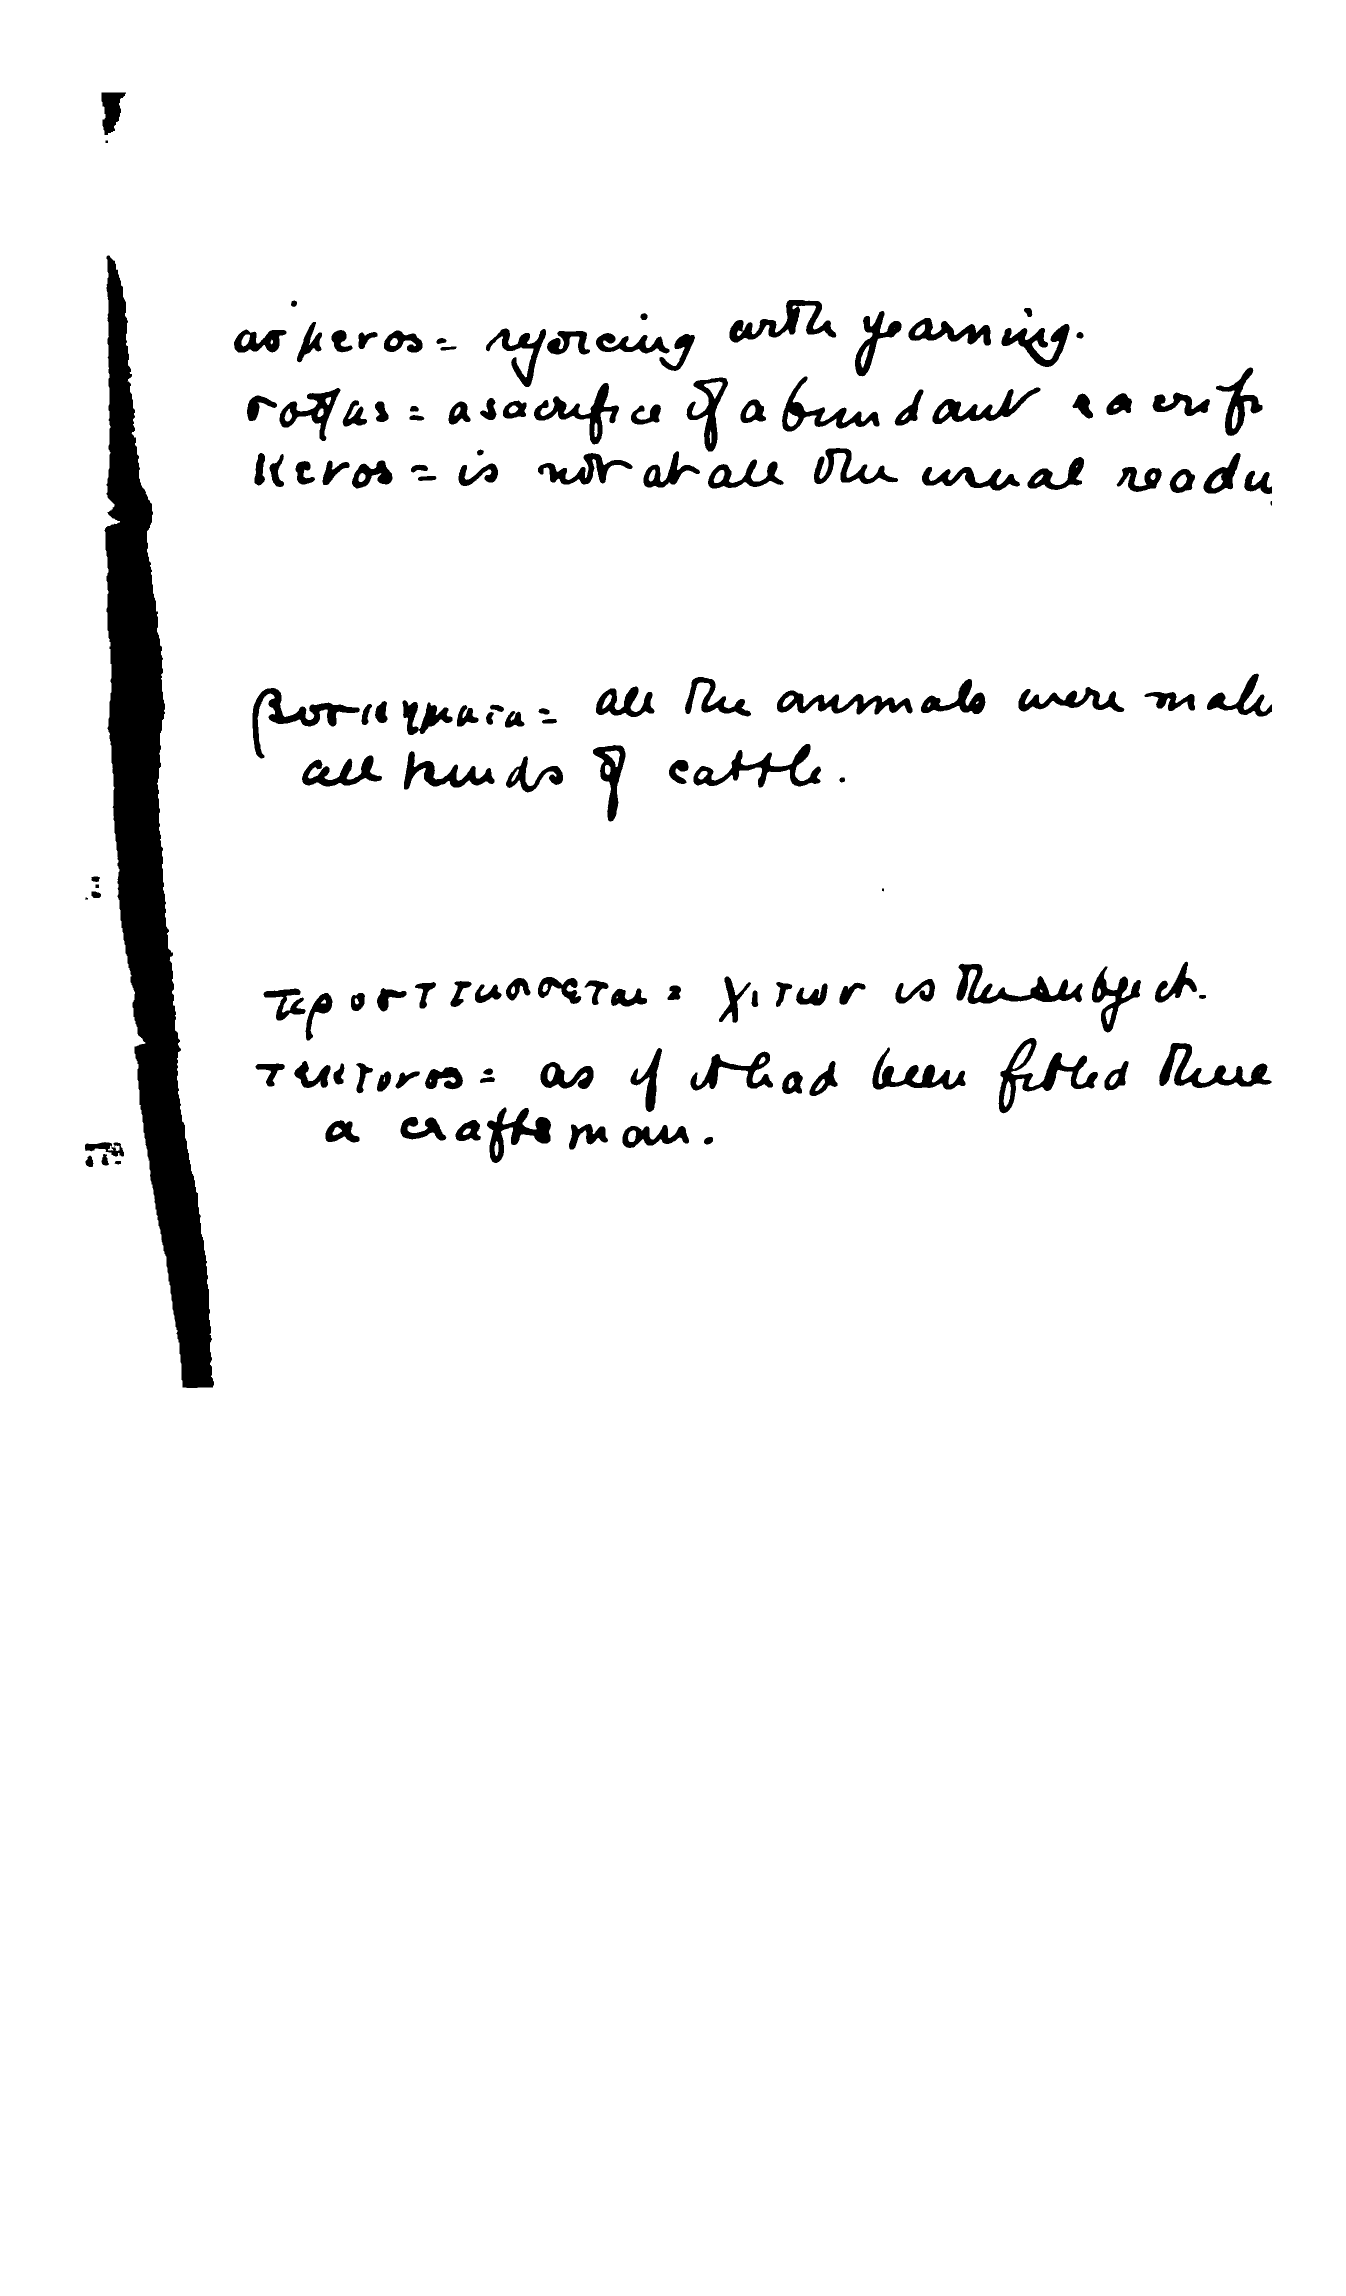 ασμενος = rejoicing with yearning.
= a sacrifice of abundant sacrifi
κενος = is not at all the usual readi
βοσκηματα = all the animals were male
all kinds of cattle.
προσπτυσσεται = χιτων is the subject.
τεκτονος = as if it had been fitted there
a craftsman.